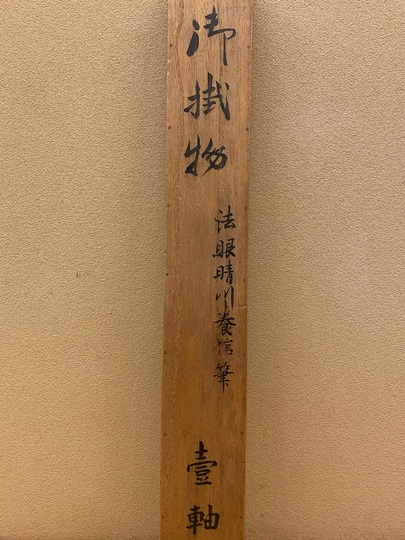 御掛物
法眼晴川養信筆
壹軸